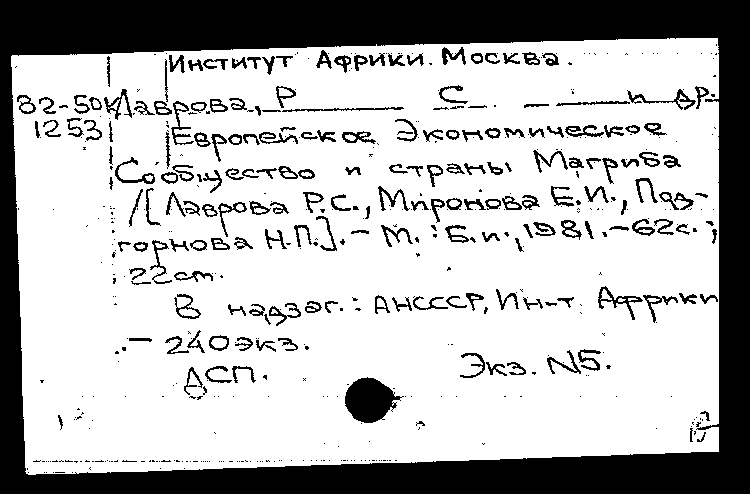 Институт Африки. Москва.
82-50К Лаврова, Р С и др.
1253 Европейское Экономическое
Сообщество и страны Магриба
/[Лаврова Р.С., Миронова Е.И., Под-
горнова Н.П.]. – М. : Б.и., 1981. – 62с. ;
22см.
В надзаг.: АНСССР, Ин-т Африки
. – 240экз.
ДСП. Экз. N5.